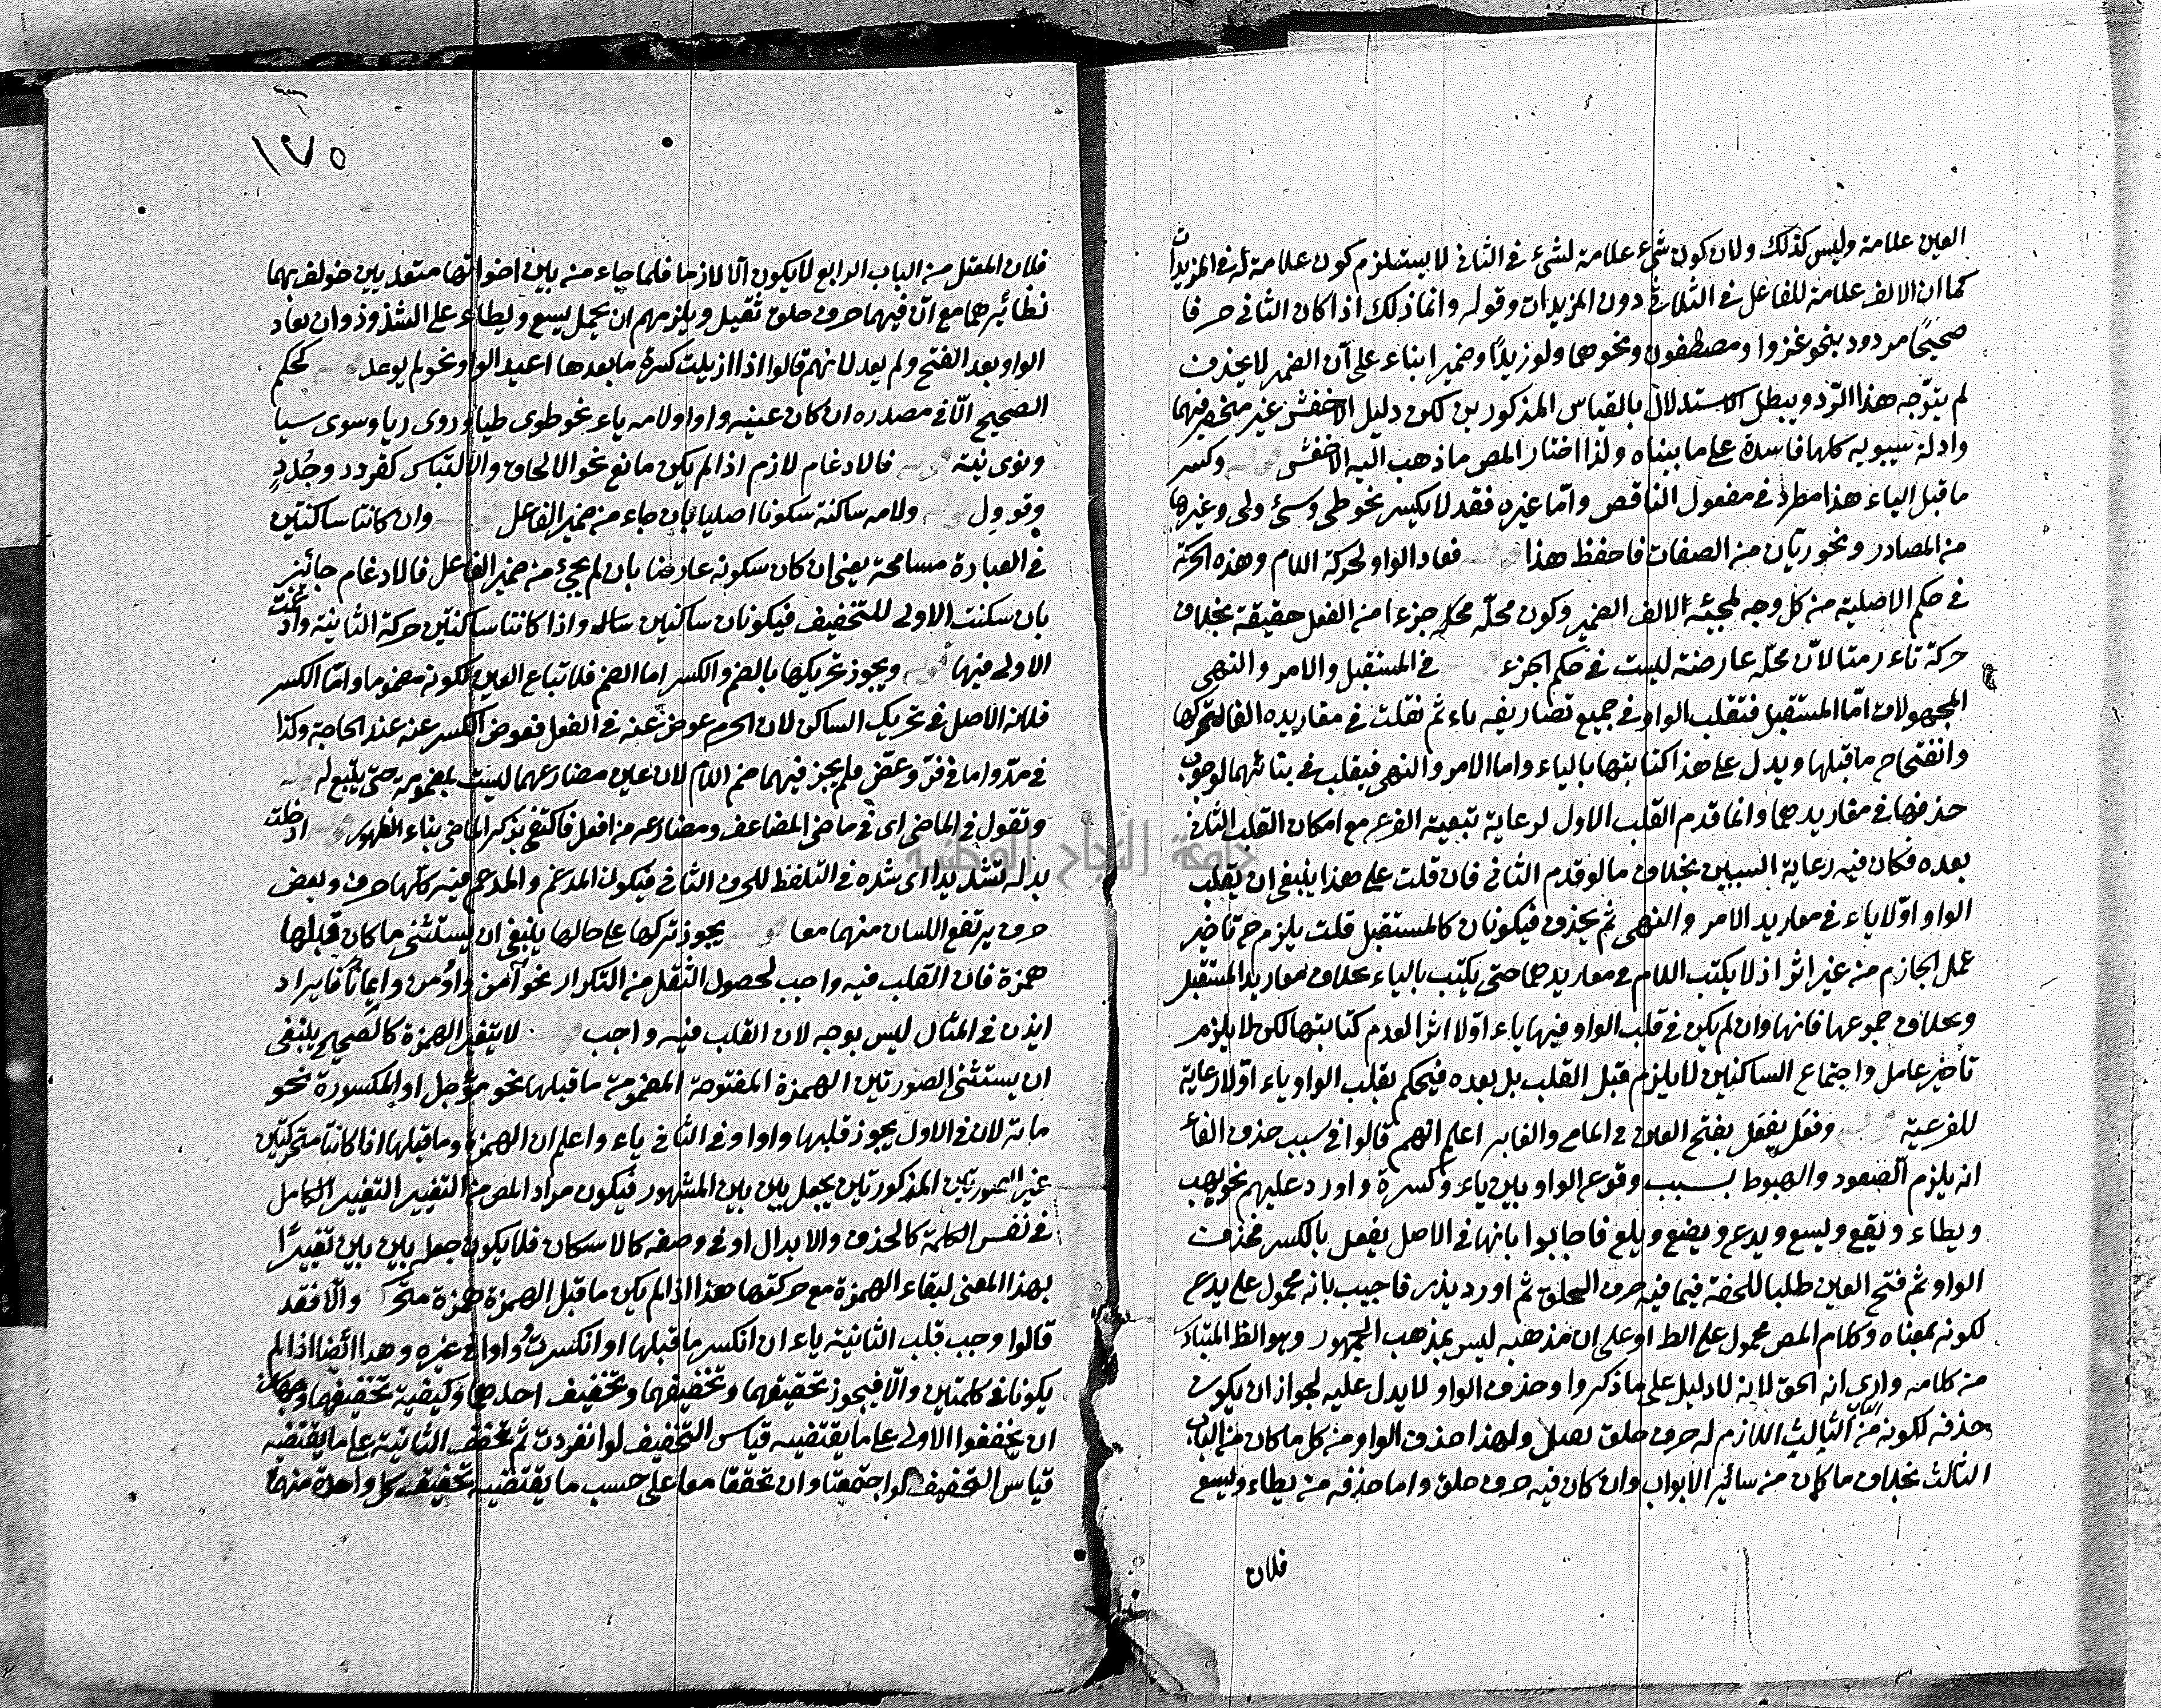 العين علامة وليس كذلك ولان كون شيء علامة لشيء في الثاني لا يستلزم كون علامة له في المزيدات
كما ان الالف علامة للفاعل في الثلاثي دون المزيدات وقوله وانما ذلك اذا كان الثاني حرفا
صحيحًا مردود بنحو غزوا ومصطفون ونحوهما ولو زيدًا وضميرا بناء على ان الضمير لا يحذف
لم يتوجه هذا الرد ويبطل الاستدلال بالقياس المذكورين لكن دليل الاخفش غير منحصر فيهما
وادلة سيبويه كلها فاسدة على ما بيناه ولذا اختار المص ما ذهب اليه الاخفش قوله وكسر
ما قبل الياء هذا مطرد في مفعول الناقص واما غيره فقد لا يكسر نحو طي وشيء ولي وغيرها
من المصادر ونحو ريان من الصفات فاحفظ هذا قوله فعاد الواو لحركة اللام وهذه الحركة
في حكم الاصلية من كل وجه لمجيئه الالف الضمير وكون محله محل جزءا من الفعل حقيقة بخلاف
حركة تاء رمتا لان محله عارضة ليست في حكم الجزء قوله في المستقبل والامر والنهي
المجهولات اما المستقبل فتقلب الواو في جميع تصاريفه ياء ثم نقلت في مفاريده الفا لتحركها
وانفتاح ما قبلها ويدل على هذا كتابتها بالياء واما الامر والنهي فيقلب في بنائهما لوجوب
حذفها في مفاريدهما وانما قدم القلب الاول لرعاية تبعية الفرع مع امكان القلب الثاني
بعده فكان فيه رعاية السببين بخلاف ما لو قدم الثاني فان قلت على هذا ينبغي ان يقلب
الواو اولا ياء في مفاريد الامر والنهي ثم يحذف فيكونان كالمستقبل قلت يلزم ح تاخير
عمل الجازم من غير اثر اذ لا يكتب اللام في مفاريدهما حتى يكتب بالياء بخلاف مفاريد المستقبل
وبخلاف جموعها فانها وان لم يكن في قلب الواو فيها ياء اولا اثر لعدم كتابتها لكن لا يلزم
تاخير عامل واجتماع الساكنين لا يلزم قبل القلب بل بعده فيحكم بقلب الواو ياء اولا رعاية
للفرعية قوله وفعل يفعل بفتح العين في الماضي والغابر اعلم انهم قالوا في سبب حذف الفاء
انه يلزم الصعود والهبوط بسبب وقوع الواو بين ياء وكسرة واورد عليهم نحو يهب
ويطاء ويقع ويسع ويدع ويضع ويلع فاجابوا بانها في الاصل يفعل بالكسر فحذفت
الواو ثم فتح العين طلبا للخفة فيما فيه حرف الحلق ثم اورد يذر فاجيب بانه محمول على يدع
لكونه بمعناه وكلام المص محمول على الظ او على ان مذهبه ليس بمذهب الجمهور وهو الظ المتبادر
من كلامه وارى انه الحق لانه لا دليل على ما ذكروا وحذف الواو لا يدل عليه لجواز ان يكون
حذفه لكونه من الباب الثالث اللازم له حرف حلق ثقيل ولهذا حذف الواو من كل ما كان من الباب
الثالث بخلاف ما كان من سائر الابواب وان كان فيه حرف حلق واما حذفه من يطاء ويسع
فلان
١٧٥
فلان المعتل من الباب الرابع لا يكون الا لازما فلما جاء من بين اخواتها متعديين خولف بهما
نظائرهما مع ان فيهما حرف حلق ثقيل ويلزمهم ان يحمل يسع ويطاء على الشذوذ وان يعاد
الواو بعد الفتح ولم يعد لانهم قالوا اذا ازيلت كسرة ما بعدها اعيد الواو نحو لم يوعد قوله كحكم
الصحيح الا في مصدره ان كان عينه واوا ولامه ياء نحو طوى طيا وروى ريا وسوى سيا
ونوى نية قوله فالادغام لازم اذا لم يكن مانع نحو الالحاق والالتباس كقردد وجُدُدٍ
وقوول قوله ولامه ساكنة سكونا اصليا بان جاء من ضمير الفاعل قوله وان كانتا ساكنتين
في العبارة مسامحة يعني ان كان سكونه عارضا بان لم يجئ من ضمير الفاعل فالادغام جائز
بان سكنت الاولى للتخفيف فيكونان ساكنين واذا كانتا ساكنتين حركة الثانية وادغمت
الاولى فيها قوله ويجوز تحريكها بالضم والكسر اما الضم فلاتباع العين لكونه مضموما واما الكسر
فلانه الاصل في تحريك الساكن لان الجزم عوض عنه في الفعل فعوض الكسر عنه عند الحاجة وكذا
في مدّ واما في فرّ وعضّ فلم يجز فيهما ضم اللام لان عين مضارعهما ليست بمضمومة حتى يتبع له قوله
وتقول في الماضي اى في ماضي المضاعف ومضارعه من افعل فاكتفى بذكر الماضي بناء لظهوره قوله ادخلت
بدله تشديدا اى شدة في التلفظ للحرف الثاني فيكون المدغم والمدغم فيه كانهما حرف وبعض
حرف يرتفع اللسان منهما معا قوله يجوز تركها على حالها ينبغي ان يستثنى ما كان قبلها
همزة فان القلب فيه واجب لحصول الثقل من التكرار نحو آمن واُومن وايمانًا فايراد
ايذن في المثال ليس بوجه لان القلب فيه واجب قوله لا يتغير الهمزة كالصحيح ينبغي
ان يستثنى الصورتين الهمزة المفتوحة المضمومة ما قبلها نحو مؤجل او المكسورة نحو
مائة لان في الاول يجوز قلبها واوا وفي الثاني ياء واعلم ان الهمزة وما قبلها اذا كانتا متحركتين
غير الصورتين المذكورتين يجعل بين بين المشهور فيكون مراد المص من التغيير التغيير الكامل
في نفس الكلمة كالحذف والابدال او في وصفه كالاسكان فلا يكون جعله بين بين تغييرًا
بهذا المعنى لبقاء الهمزة مع حركتها هذا اذا لم يكن ما قبل الهمزة همزة متحركة والا فقد
قالوا وجب قلب الثانية ياء ان انكسر ما قبلها او انكسرت وواوا في غيره وهذا ايضا اذا لم
يكونا في كلمتين والا فيجوز تحقيقهما وتخفيفهما وتخفيف احدهما وكيفية تخفيفهما وجهان
ان يخففوا الاولى على ما يقتضيه قياس التخفيف لو انفردت ثم تخفف الثانية على ما يقتضيه
قياس التخفيف لو اجتمعتا وان تحققا معا على حسب ما يقتضيه تخفيف كل واحدة منهما